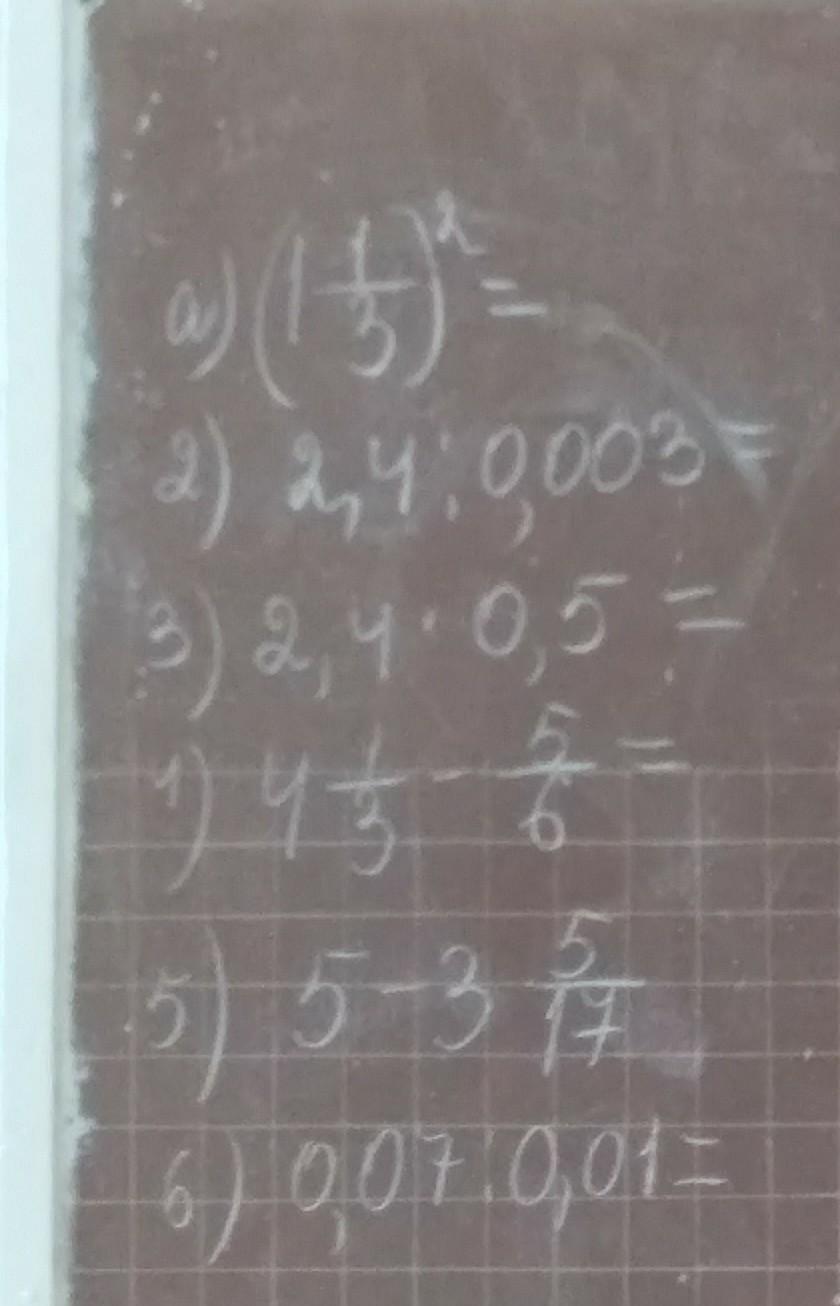 а) (1 1/3)² =
2) 2,4 : 0,003 =
3) 2,4 · 0,5 =
4) 4 1/3 - 5/6 =
5) 5 - 3 5/17
6) 0,07 : 0,01 =